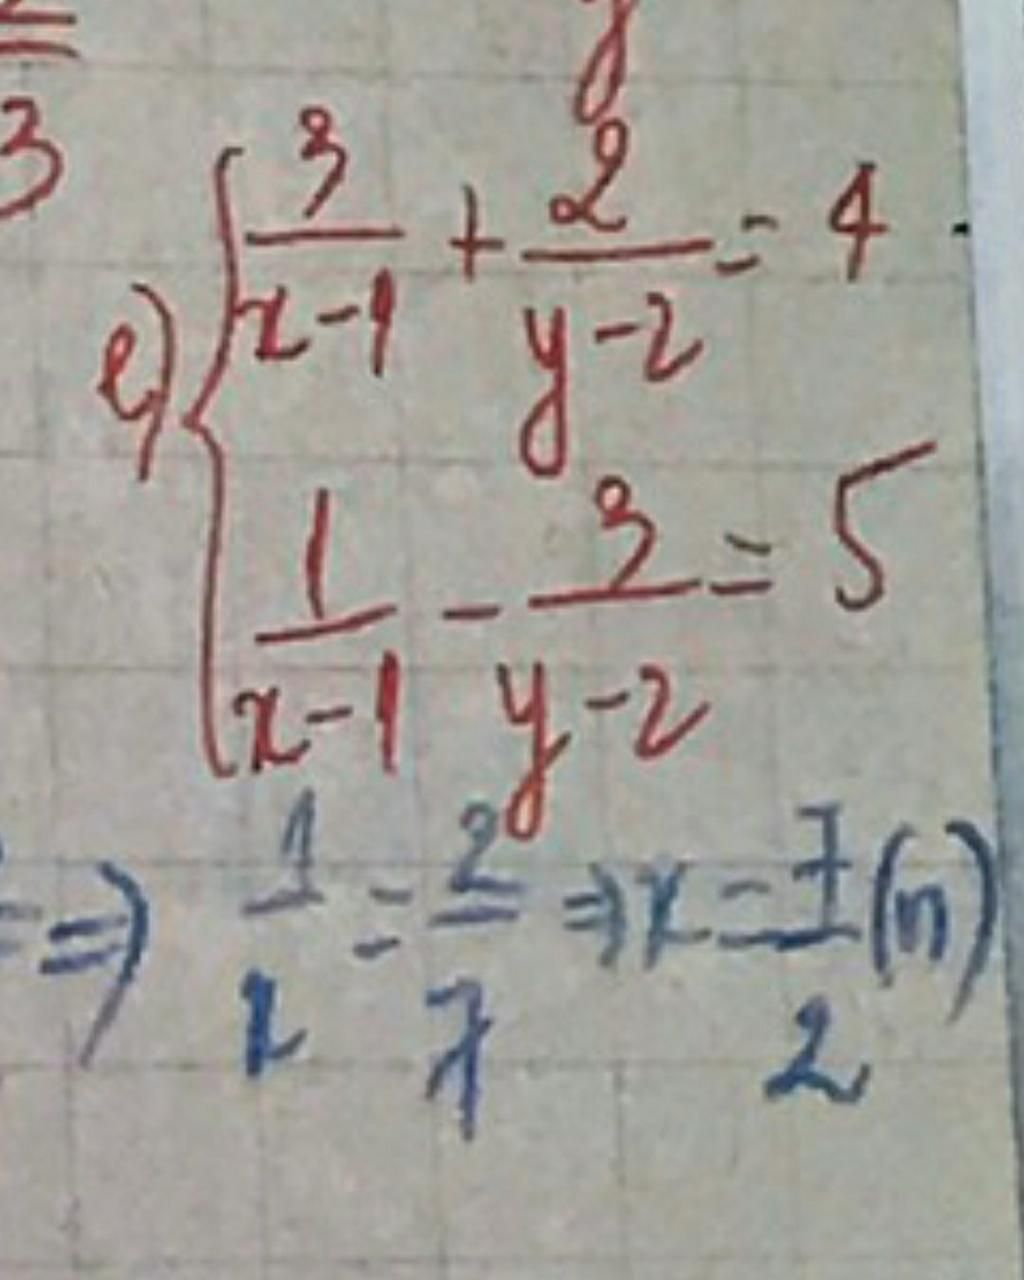 3
y
e) { 3/(x-1) + 2/(y-2) = 4
1/(x-1) - 3/(y-2) = 5
=> 1/x = 2/7 => x = 7/2 (n)